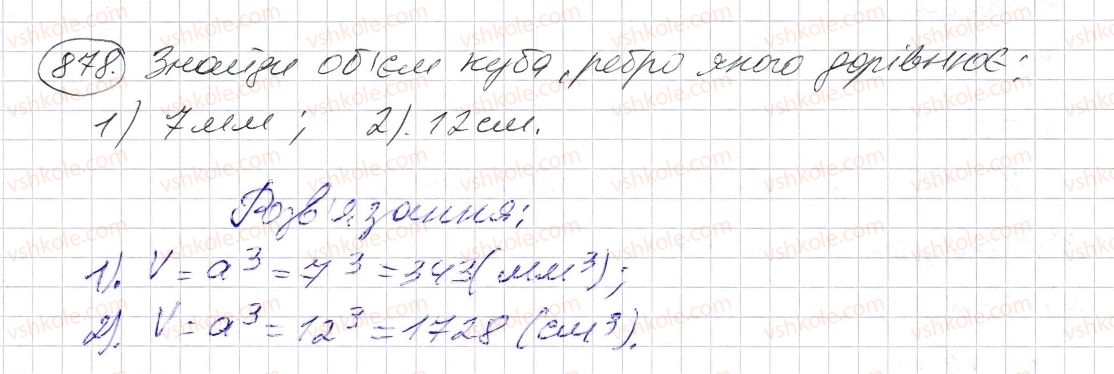 878. Знайди об'єм куба, ребро якого дорівнює:
1) 7 мм; 2). 12 см.
Розв'язання:
1). V = a³ = 7³ = 343 (мм³);
2). V = a³ = 12³ = 1728 (см³).